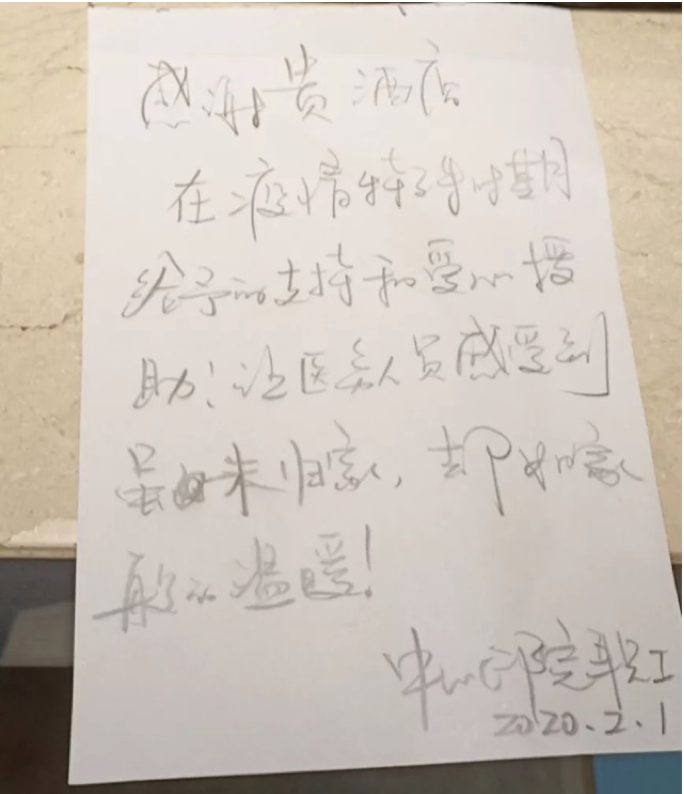 感谢贵酒店
在疫情特殊时期
给予的支持和爱心援
助！让医务人员感受到
虽未归家，却如家
般的温暖！
中心医院职工
2020.2.1